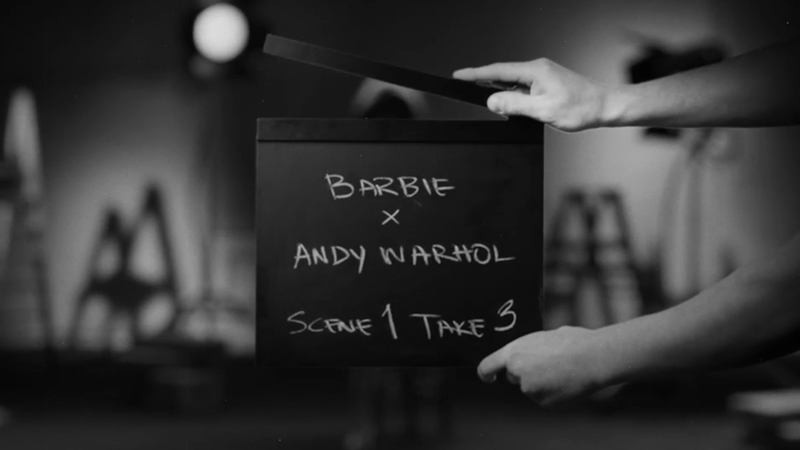 BARBIE
x
ANDY WARHOL
SCENE 1 TAKE 3